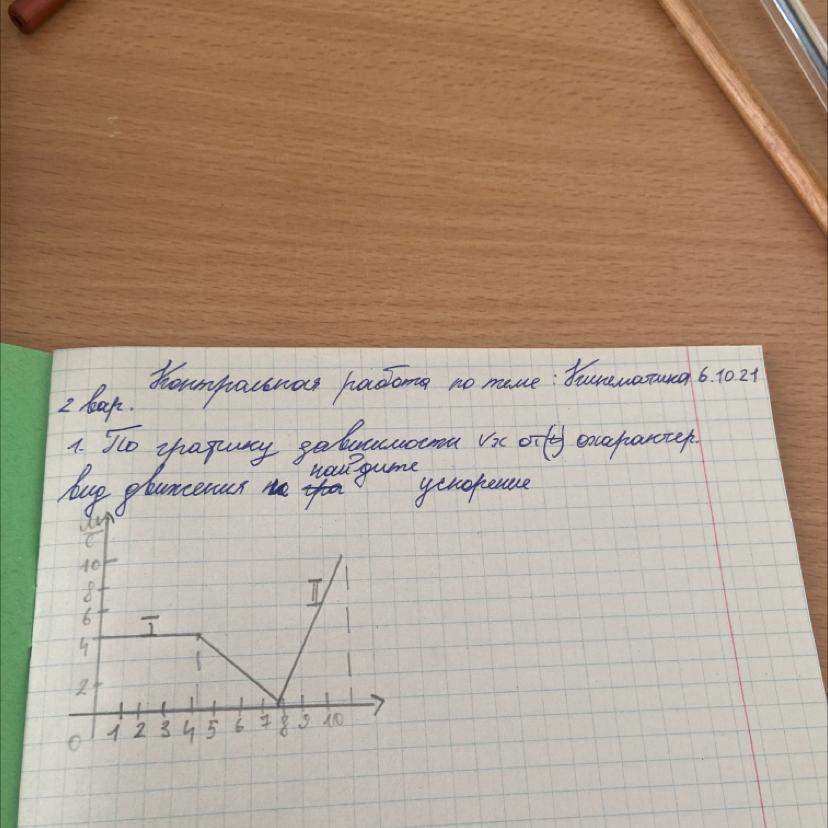 Контрольная работа по теме: Кинематика 6.10.21
2 вар.
1. По графику зависимости vx от(t) охарактер.
найдите
вид движения на гра ускорение
м
с
10
8
6
4
2
0
I
II
1 2 3 4 5 6 7 8 9 10